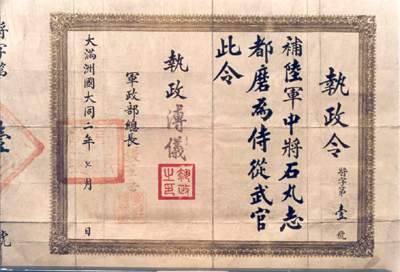 執政令
將字第壹號
補陸軍中將石丸志
都磨為侍從武官
此令
執政 溥儀
執政之印
軍政部總長
大滿洲國大同二年 月 日